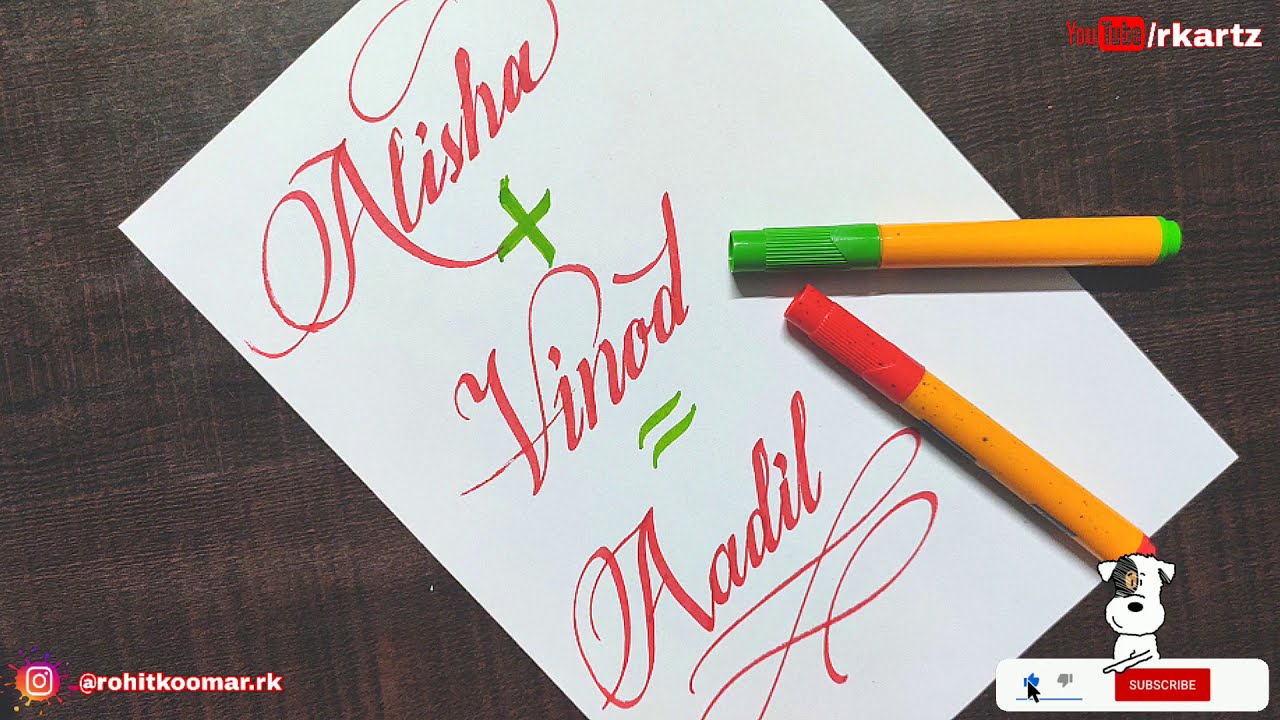 YouTube/rkartz
Alisha
+
Vinod
=
Aadil
@rohitkoomar.rk
SUBSCRIBE